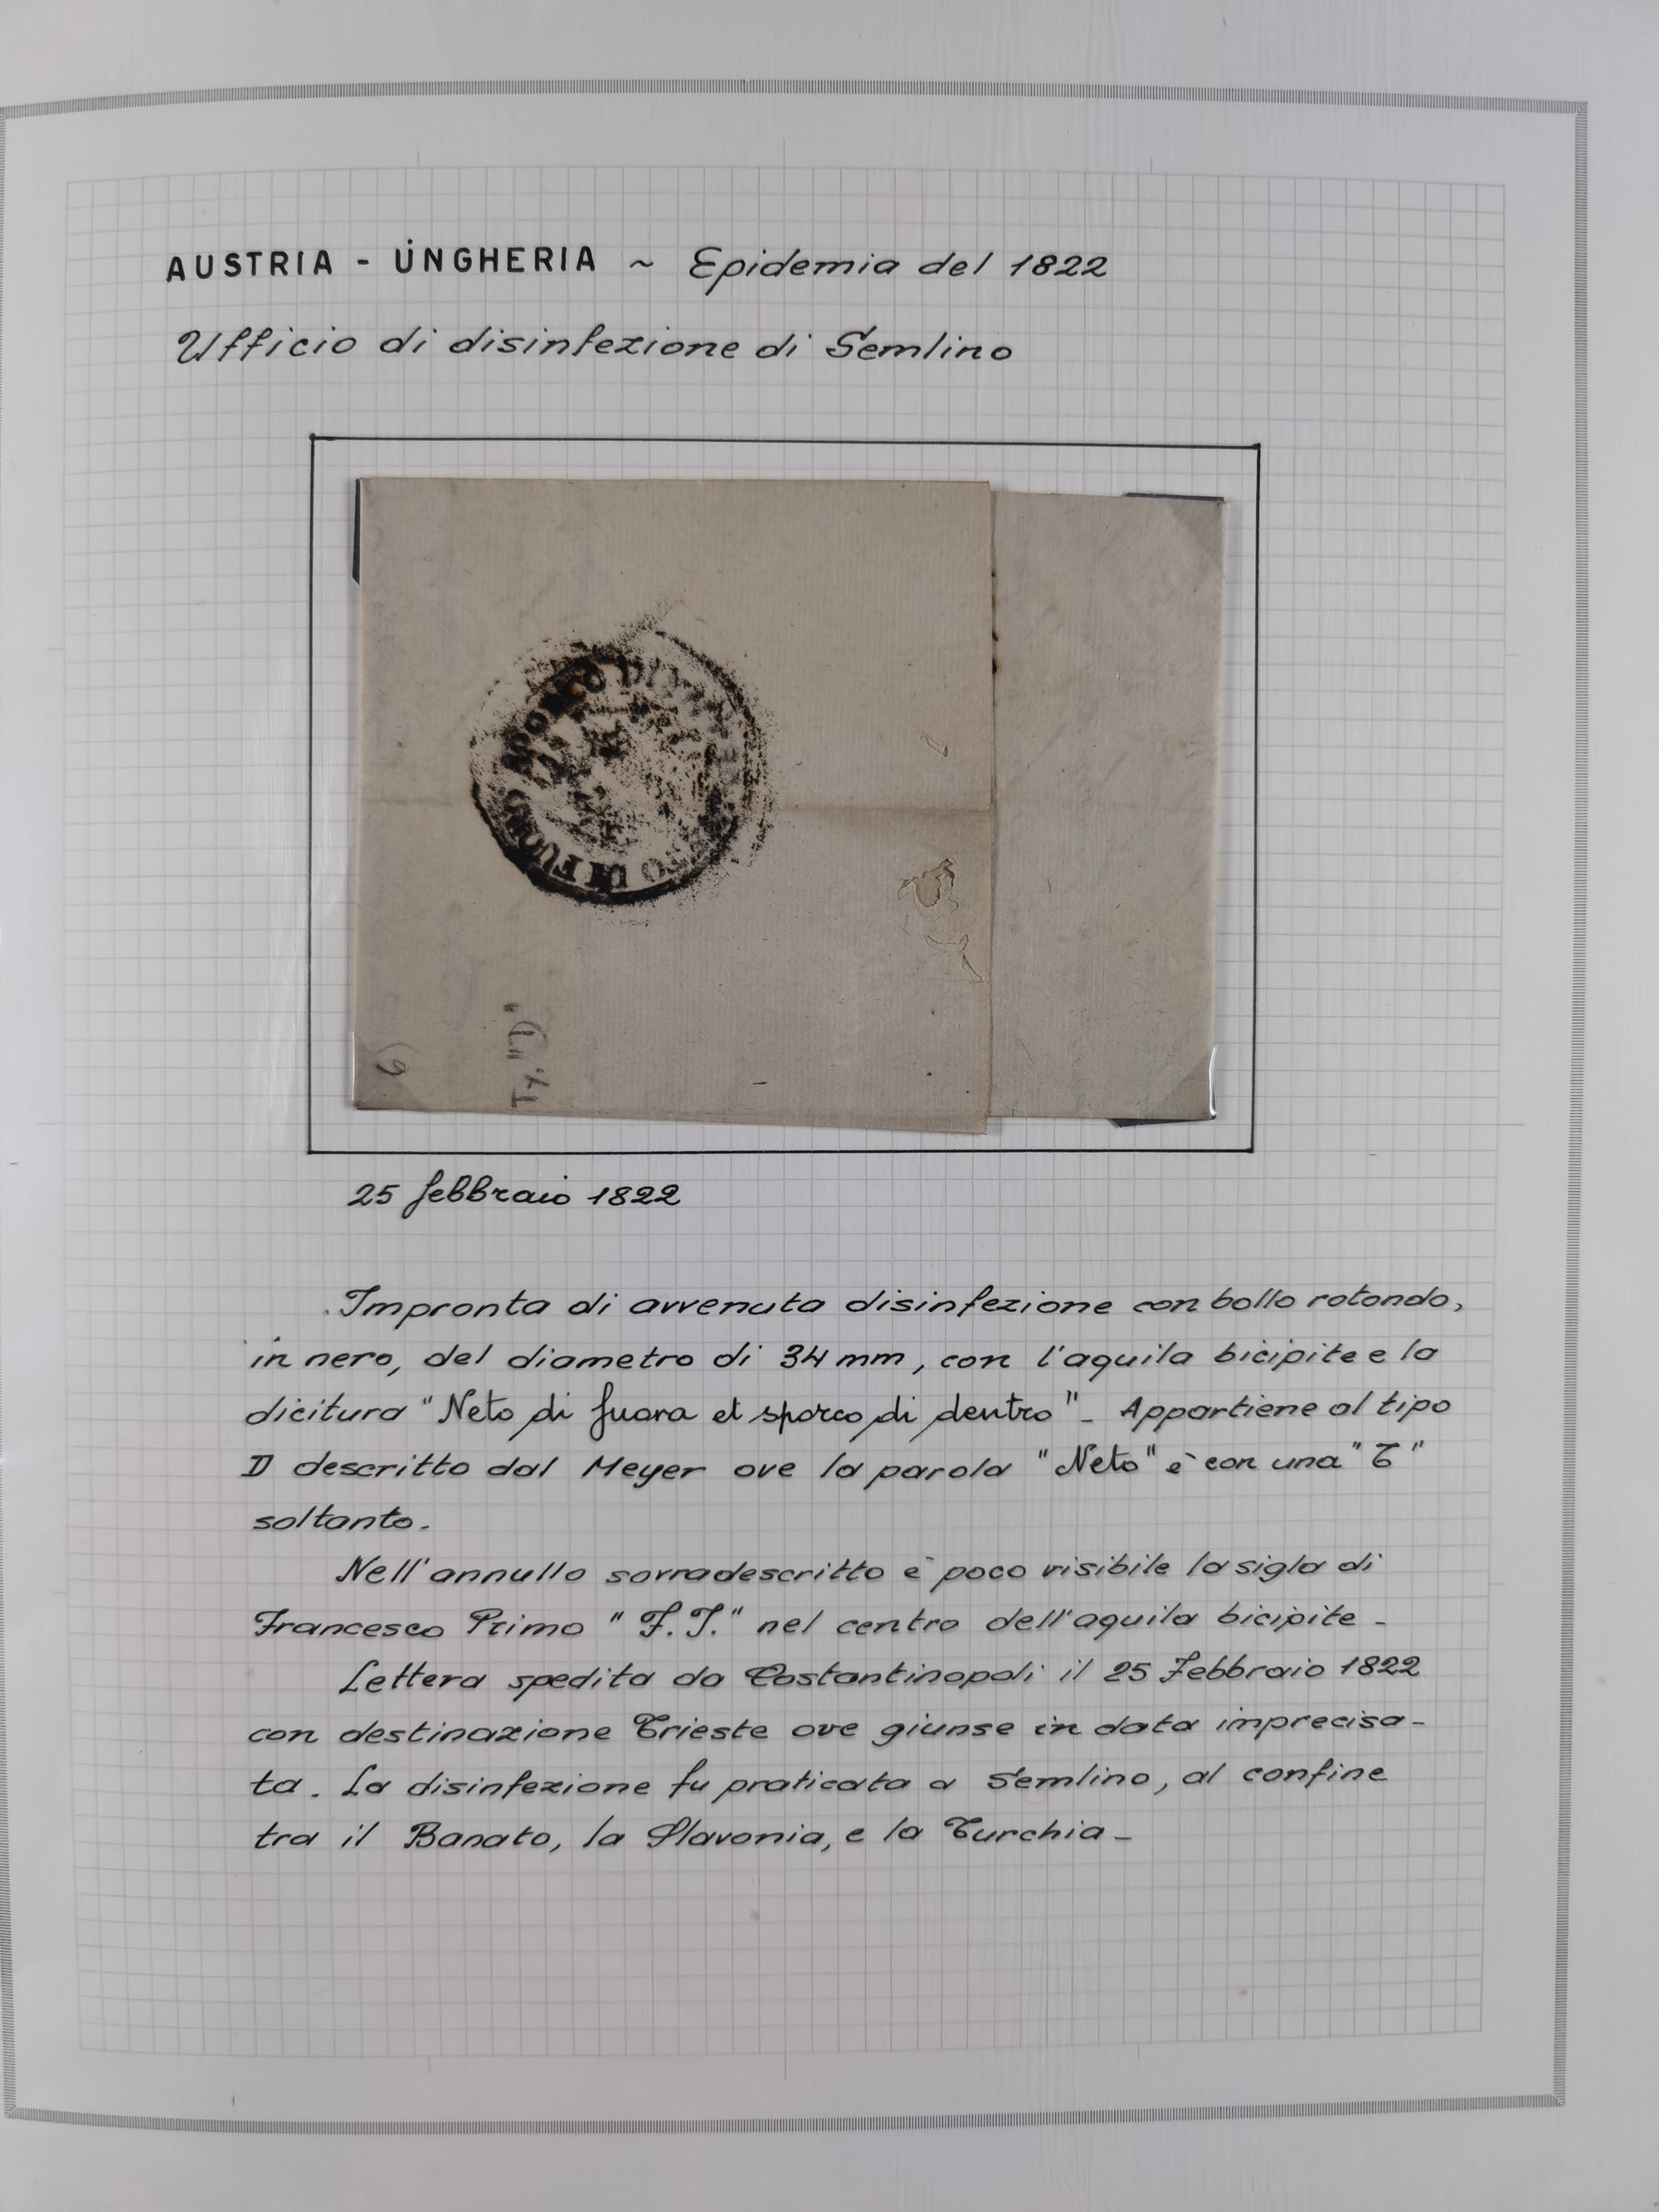 AUSTRIA - UNGHERIA ~ Epidemia del 1822
Ufficio di disinfezione di Semlino
SPORCO DI
NETO DI FUORA
Ty. "D"
6
25 febbraio 1822
Impronta di avvenuta disinfezione con bollo rotondo,
in nero, del diametro di 34 mm, con l'aquila bicipite e la
dicitura "Neto di fuora et sporco di dentro"- Appartiene al tipo
D descritto dal Meyer ove la parola "Neto" è con una "T"
soltanto.
Nell'annullo sovradescritto è poco visibile la sigla di
Francesco Primo "F.I." nel centro dell'aquila bicipite -
Lettera spedita da Costantinopoli il 25 Febbraio 1822
con destinazione Trieste ove giunse in data imprecisa-
ta. La disinfezione fu praticata a Semlino, al confine
tra il Banato, la Slavonia, e la Turchia -